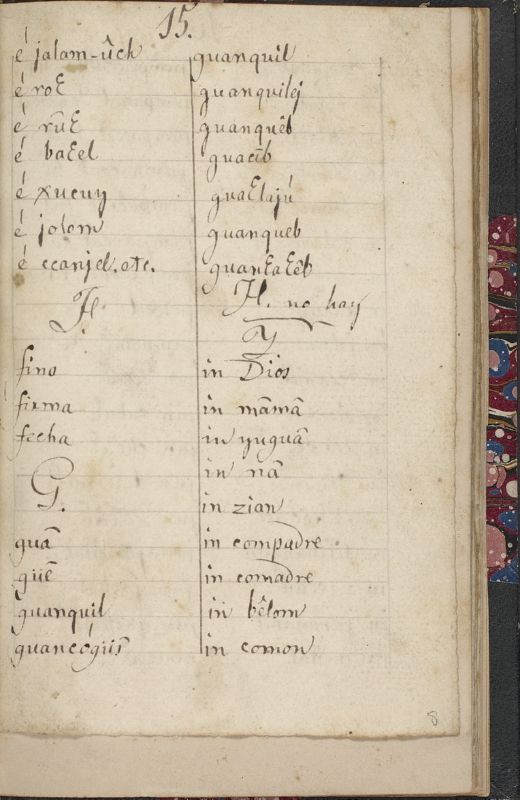 15.
é jalam-ûch
é roɛ
é rũɛ
é baɛel
é xucuy
é jolom
é ccanjel. etc.
F.
fino
firma
fecha
G.
guã
guẽ
guanquil
guancógüs̃
guanquil
guanquilej
guanquêb
guacĩb
guaɛlajú
guanqueb
guanɛaɛêb
H. no hay
Y
in Dios
in mãmã
in yuguã
in nã
in zian
in compadre
in comadre
in bêlom
in comon
8